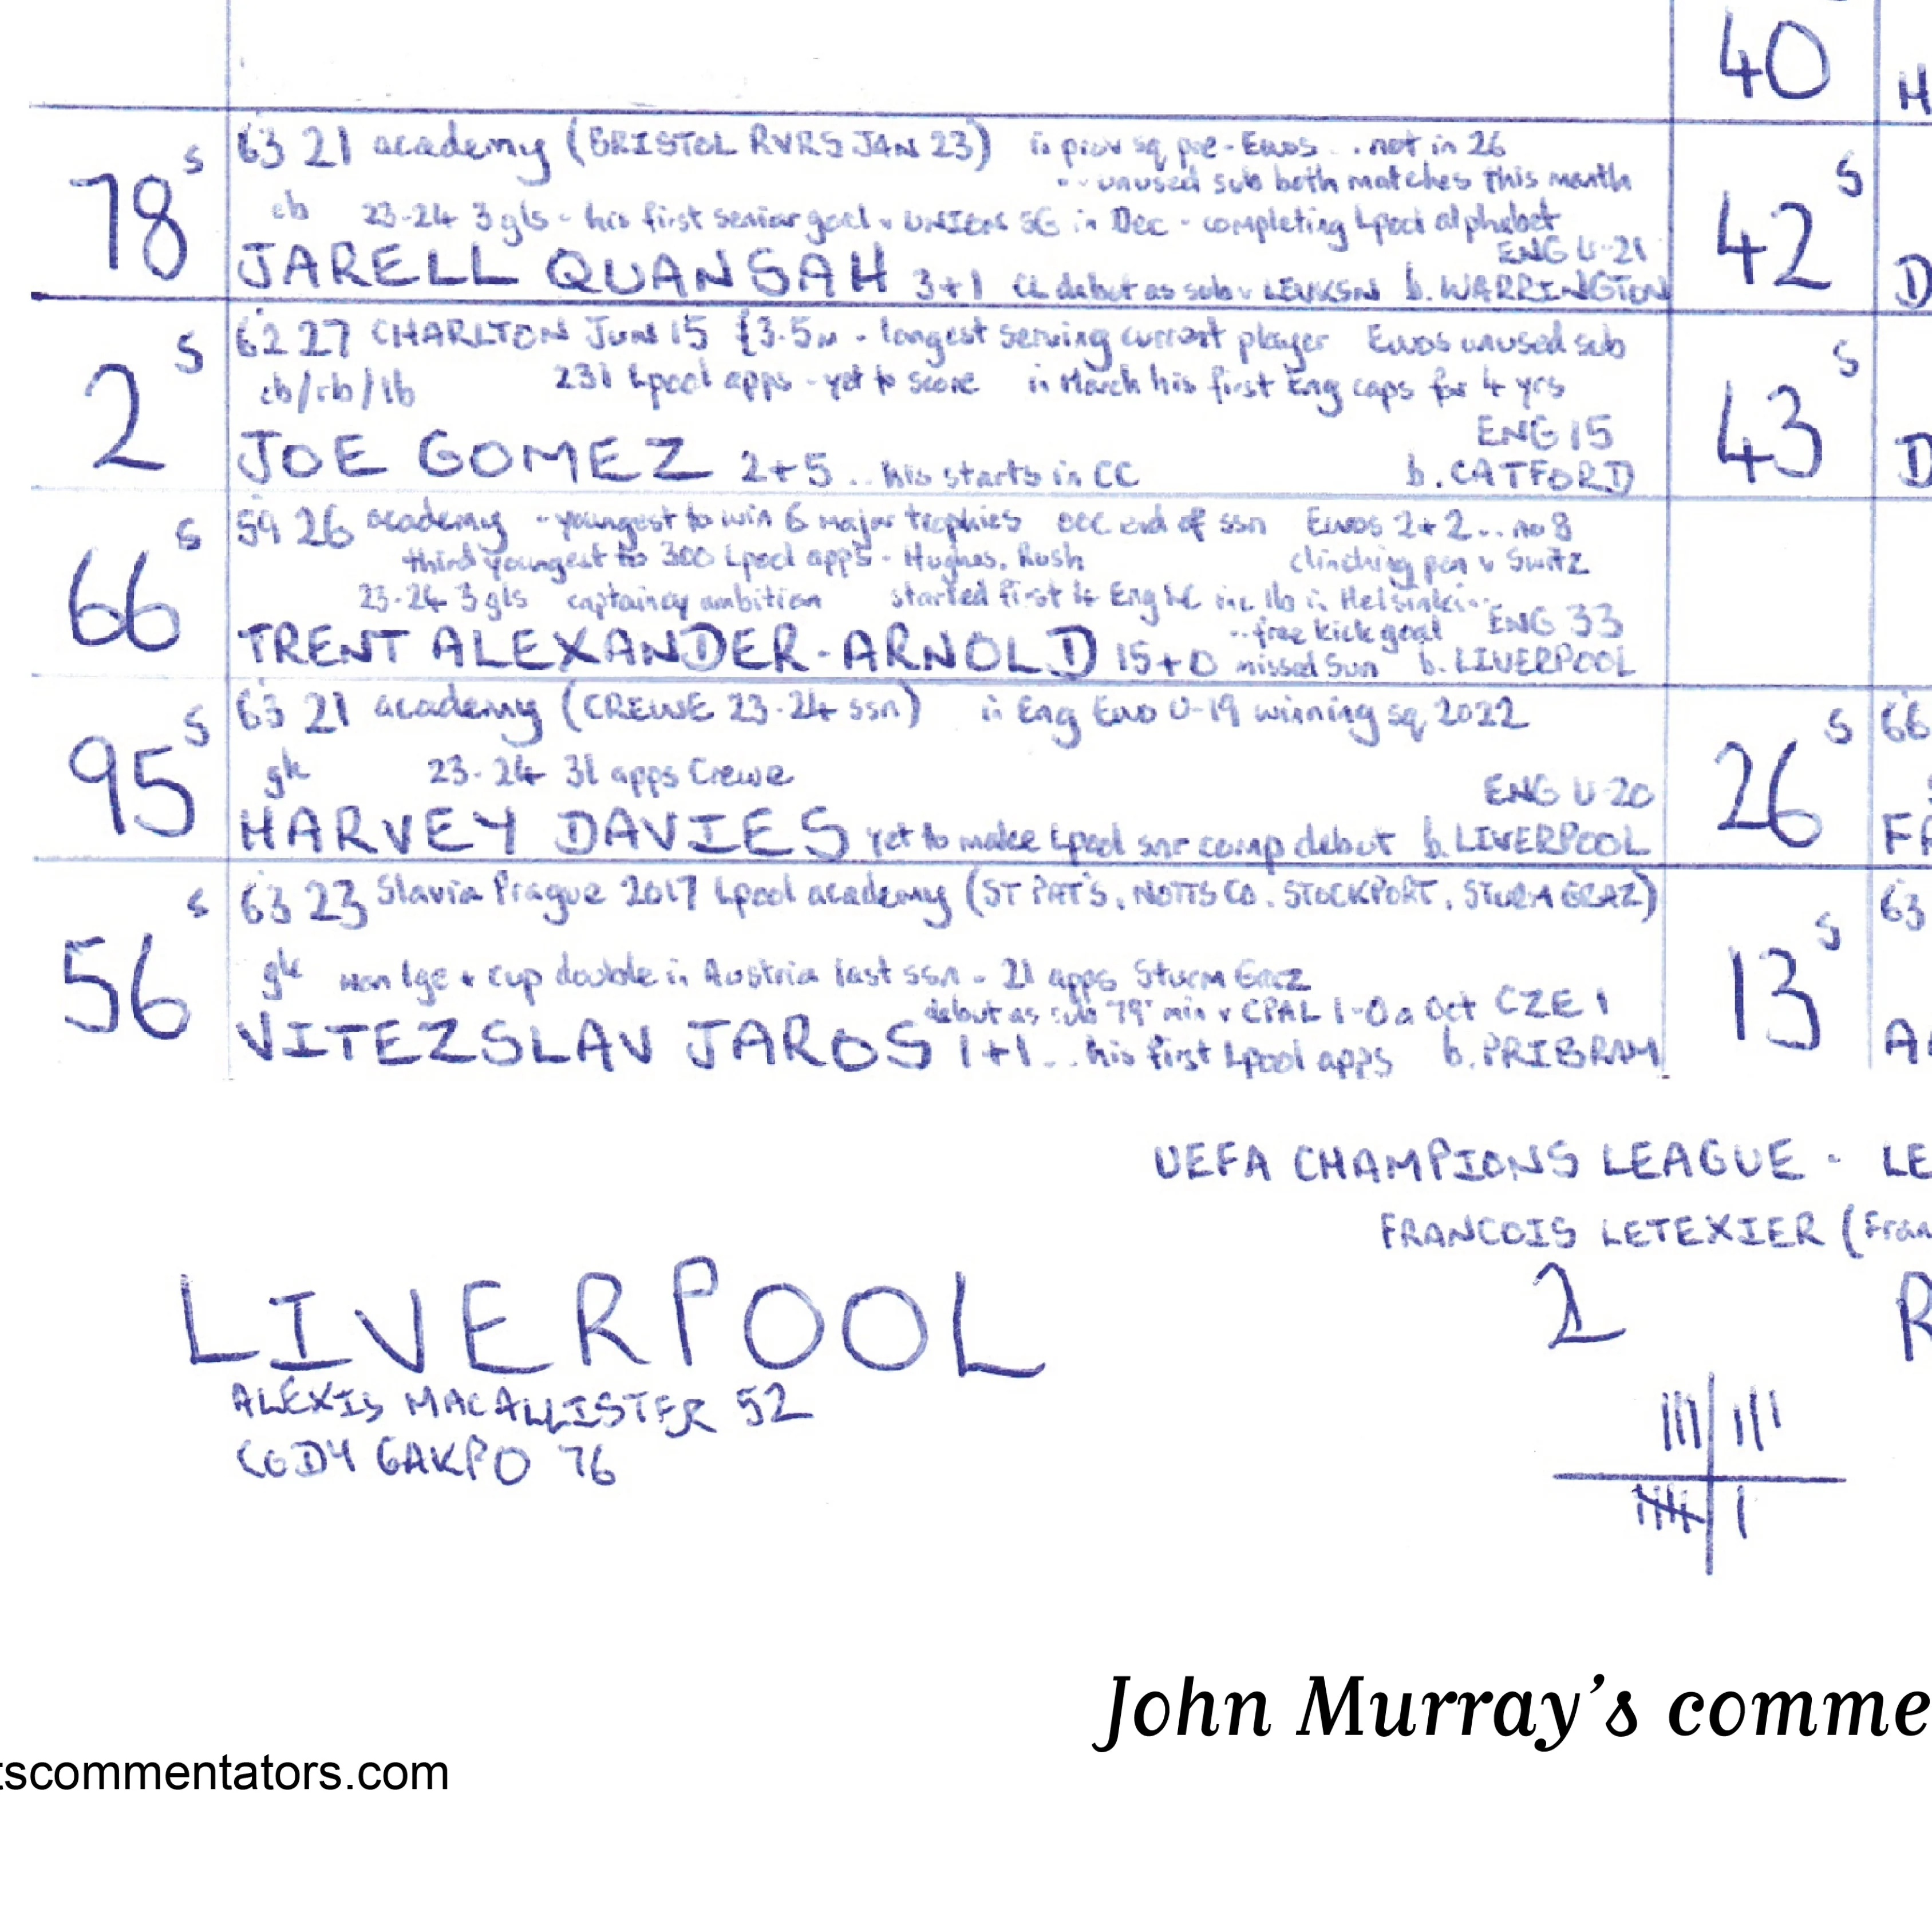 40
H
78 s
63 21 academy (BRISTOL RVRS JAN 23) in prov sq pre-Euros .. not in 26
.. unused sub both matches this month
cb 23-24 3 gls - his first senior goal v UNION SG in Dec - completing Lpool alphabet
ENG U-21
JARELL QUANSAH 3+1 CL debut as sub v LEVKSN b. WARRINGTON
42 s
D
2 s
62 27 CHARLTON June 15 £3.5m - longest serving current player Euros unused sub
cb/rb/lb 231 Lpool apps - yet to score in March his first Eng caps for 4 yrs
ENG 15
JOE GOMEZ 2+5 .. his starts in CC b. CATFORD
43 s
D
66 s
59 26 academy - youngest to win 6 major trophies OOC end of ssn Euros 2+2 .. no 8
third youngest to 300 Lpool apps - Hughes, Rush clinching pen v Switz
23-24 3 gls captaincy ambition started first 4 Eng LC inc lb in Helsinki ..
.. free kick goal ENG 33
TRENT ALEXANDER-ARNOLD 15+0 missed Sun b. LIVERPOOL
95 s
63 21 academy (CREWE 23-24 ssn) in Eng Euro U-19 winning sq 2022
gk 23-24 31 apps Crewe
ENG U-20
HARVEY DAVIES yet to make Lpool snr comp debut b. LIVERPOOL
26 s
66
FA
56 s
63 23 Slavia Prague 2017 Lpool academy (ST PAT'S, NOTTS CO, STOCKPORT, STURM GRAZ)
gk won lge + cup double in Austria last ssn - 21 apps Sturm Graz
debut as sub 79' min v CPAL 1-0 a Oct CZE 1
VITEZSLAV JAROS 1+1 .. his first Lpool apps b. PRIBRAM
13 s
63
UEFA CHAMPIONS LEAGUE - LE
FRANCOIS LETEXIER (Fran
LIVERPOOL 2 R
ALEXIS MACALLISTER 52
CODY GAKPO 76
John Murray's comme
tscommentators.com